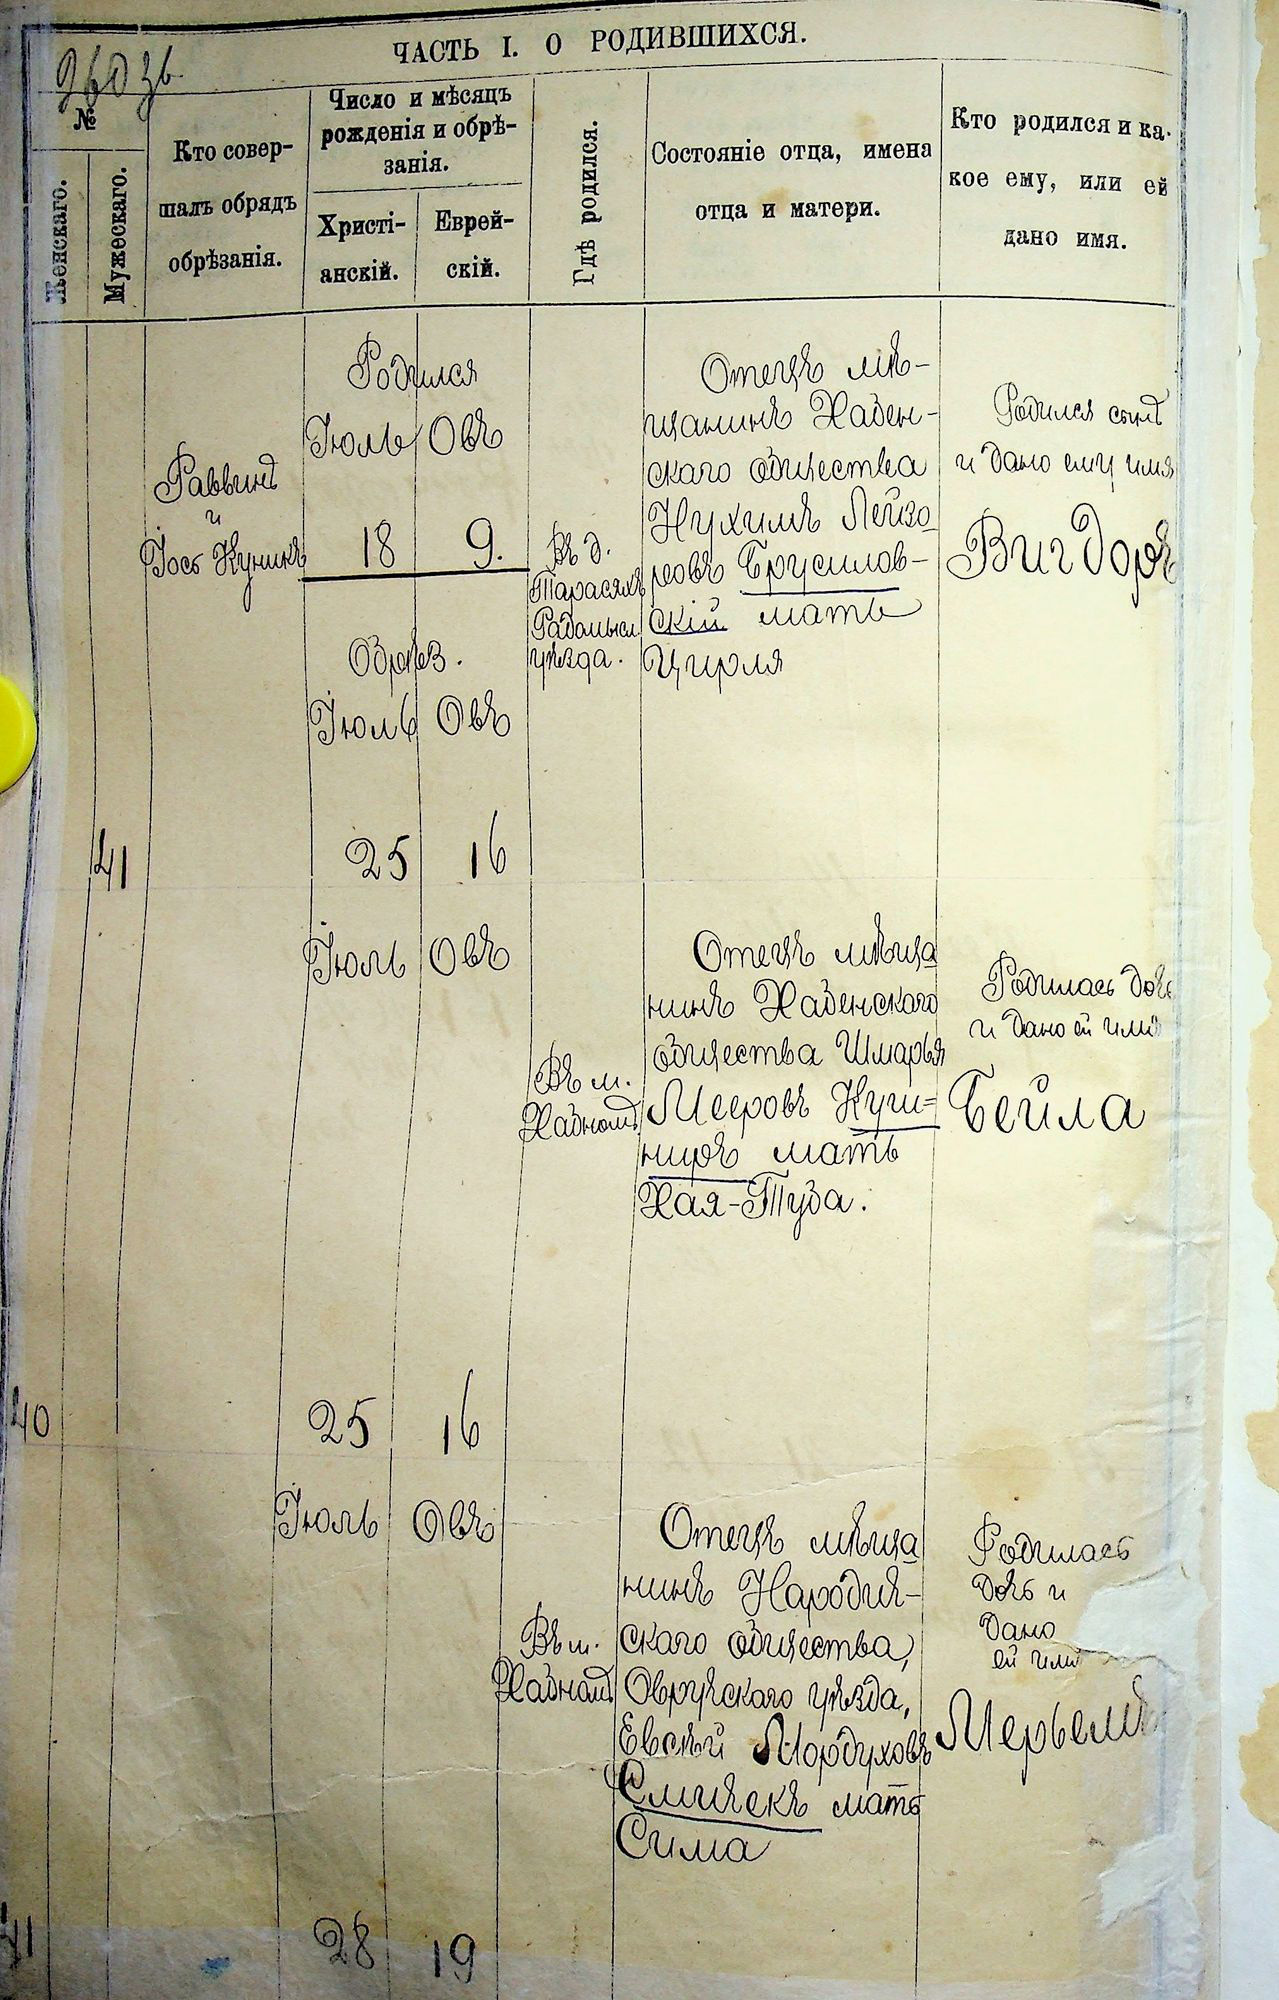 ЧАСТЬ I. О РОДИВШИХСЯ.
№
Женскаго.
Мужескаго.
Кто совер-
шалъ обрядъ
обрѣзанія.
Число и мѣсяцъ
рожденія и обрѣ-
занія.
Христі-
анскій.
Еврей-
скій.
Гдѣ родился.
Состояніе отца, имена
отца и матери.
Кто родился и ка-
кое ему, или ей
дано имя.
41
Раввинъ
и
Іось Кушнръ
Родился
Іюль Овъ
18 9.
Обрѣз.
Іюль Овъ
25 16
Въ д.
Тарасяхъ
Радомысл
уѣзда.
Отецъ мѣ-
щанинъ Хабен-
скаго общества
Нухимъ Лейзо
ровъ Брусилов-
скій мать
Цирля
Родился сынъ
и дано ему имя
Вигдоръ
40
Іюль Овъ
25 16
Въ м.
Хабномъ
Отецъ мѣща
нинъ Хабенскаго
общества Шмарья
Мееровъ Куш-
ниръ мать
Хая-Туба.
Родилась дочь
и дано ей имя
Бейла
41
Іюль Овъ
28 19
Въ м.
Хабномъ
Отецъ мѣща
нинъ Народич-
скаго общества,
Овручскаго уѣзда,
Евсѣй Мордуховъ
мать
Сима
Родилась
дочь и
дано
ей имя